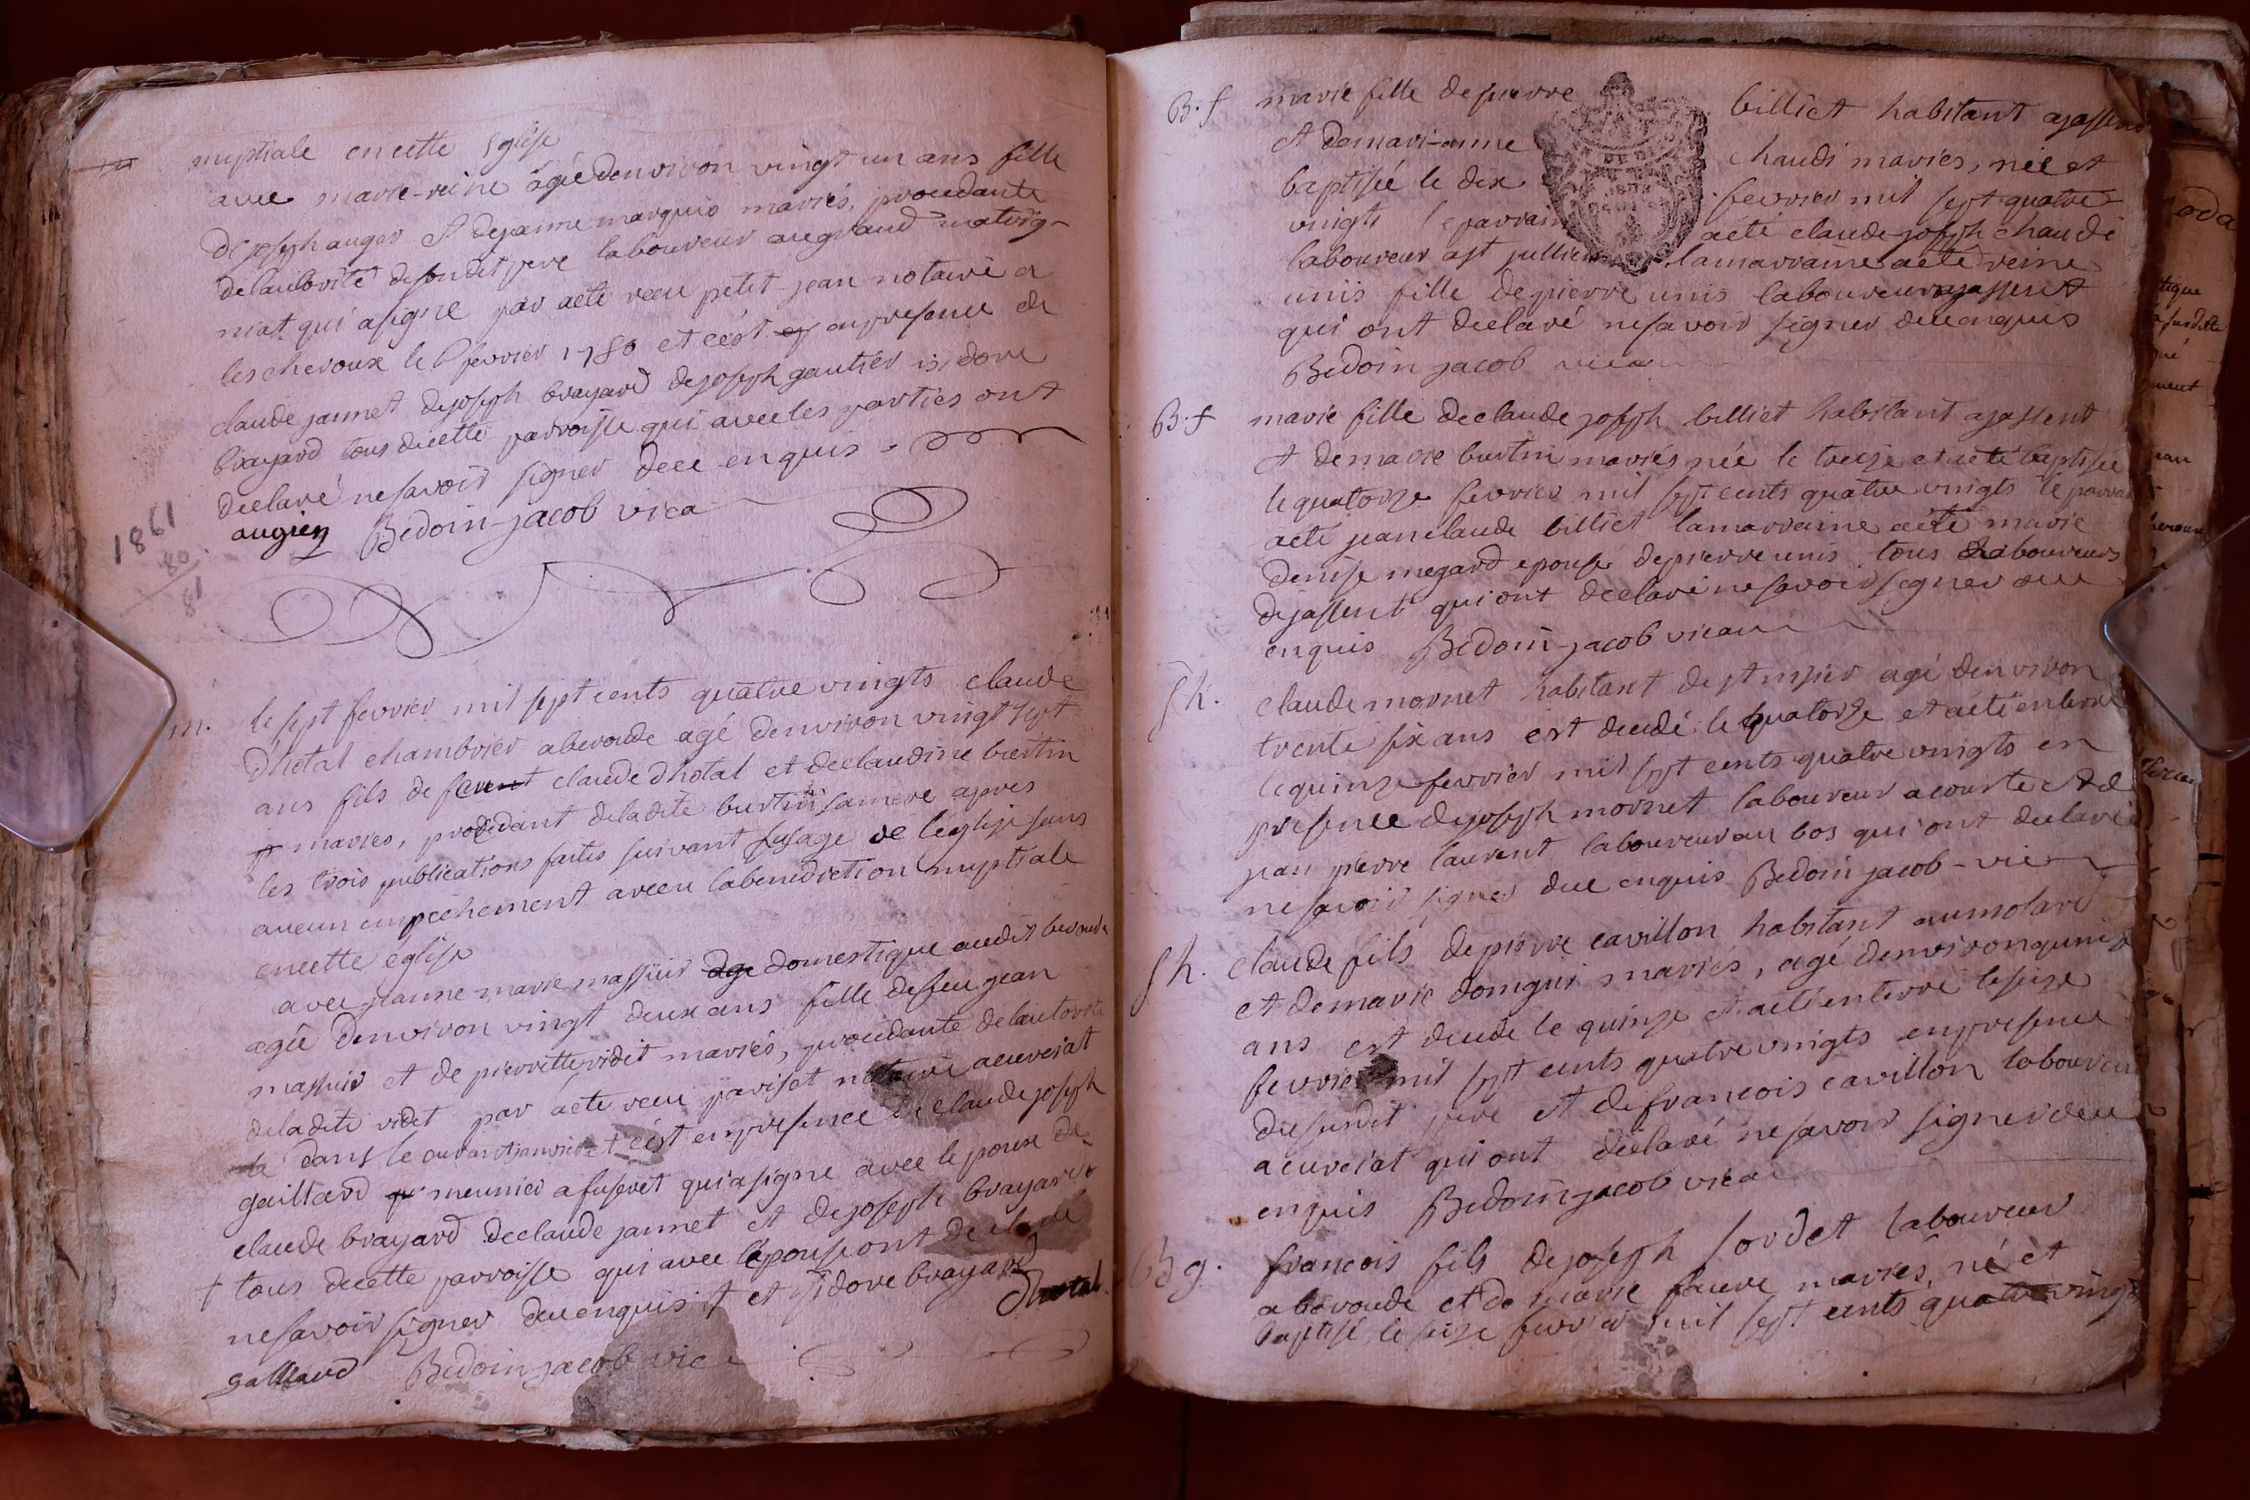 nuptiale en cette Eglise
avec marie-reine agée denviron vingt un ans fille
de joseph auger et dejanne marquis mariés, procedante
delautorité desondit pere laboureur au grand
mat qui asigné par acte recu petit-jean notaire a
lescheroux le fevrier 1780 et c'est en presence de
claude jannet dejoseph brayard dejoseph gautier isidore
brayard tous decette parroisse qui avec les parties ont
declaré nesavoir signer dece enquis
augier Bedoin-jacob vica
1861
80
81
m. le sept fevrier mil sept cents quatre vingts claude
Dhotal chambrier aberoude agé denviron vingt sept
ans fils de claude dhotal et declaudine burtin
mariés, procedant deladite burtin samere apres
les trois publications faites suivant lusage de léglise sans
aucun empéchement areçu labenediction nuptiale
encette église
avec jeanne-marie massuir domestique audit beroude
agée denviron vingt deux ans fille defeu jean
massuir et de pierrette vidit mariés, procedante delautorité
deladite vidit par acte recu parisot notaire acuresiat
dans le courant janvier et cést enpresence de claude joseph
gaillard meunier a fuseret qui asigné avec lepoux de
claude brayard declaude jannet et dejoseph brayard
+ tous decette parroisse qui avec lépouse ont declaré
nesavoir signer dece enquis et isidore brayard
Dhotal
gallard Bedoin-jacob vic
B.f marie fille depierre billiet habitant ajassent
et demari-anne chaudi mariés, née et
baptisée le dix fevrier mil sept quatre
vingts le parrain aété claude joseph chaudi
laboureur ast jullien lamarraine aété reine
unis fille depierre unis laboureur ajassent
qui ont declaré nesavoir signer dece enquis
Bedoin jacob vica
B.f marie fille declaude joseph billiet habitant ajassent
et demarie burtin mariés née le treize et aété baptisée
lequatorze fevrier mil sept cents quatre vingts le parrain
aété jeanclaude billiet lamarraine aété marie
denise megard epouse depierre unis tous laboureurs
dejassent qui ont declaré nesavoir signer dece
enquis Bedoin-jacob vicau
Sh. claude mornet habitant agé denviron
trente six ans est decedé le quatorze et aété enterré
lequinze fevrier mil sept cents quatre vingts en
presence dejoseph mornet laboureur acourte et de
jean pierre laurent laboureur au bos qui ont declaré
nesavoir signer dece enquis Bedoin jacob-vic
Sh. claude fils depierre cavillon habitant aumolard
et demarie donguis mariés, agé denviron quinze
ans est decedé le quinze et aété enterré leseize
fevrier mil sept cents quatre vingts enpresence
desondit pere et defrancois cavillon laboureur
acuresiat qui ont déclaré nesavoir signer dece
enquis Bedoin-jacob vica
B g. francois fils dejoseph sordet laboureur
aberoude et de marie faure mariés, né et
baptisé le seize fevrier mil sept cents quatre vingt